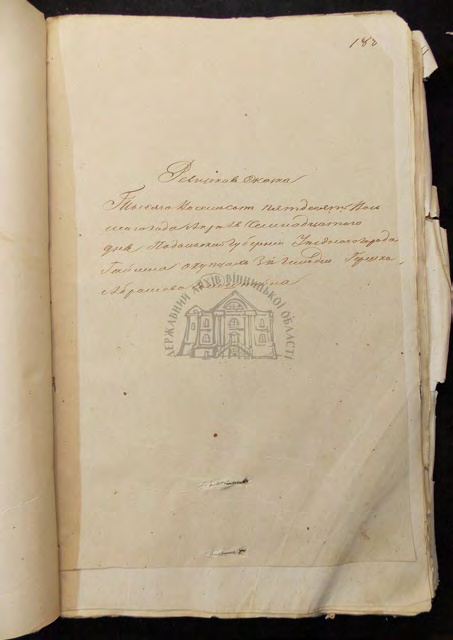 182
Ревижская Сказка
Тысяча восемьсот пятдесят Вось
маго года Апреля Семнадцатого
дня Подольской Губернии Уездного города
Гайсина о купцах 3й Гильдии
Абрамова
ДЕРЖАВНИЙ АРХІВ ВІННИЦЬКОЇ ОБЛАСТІ